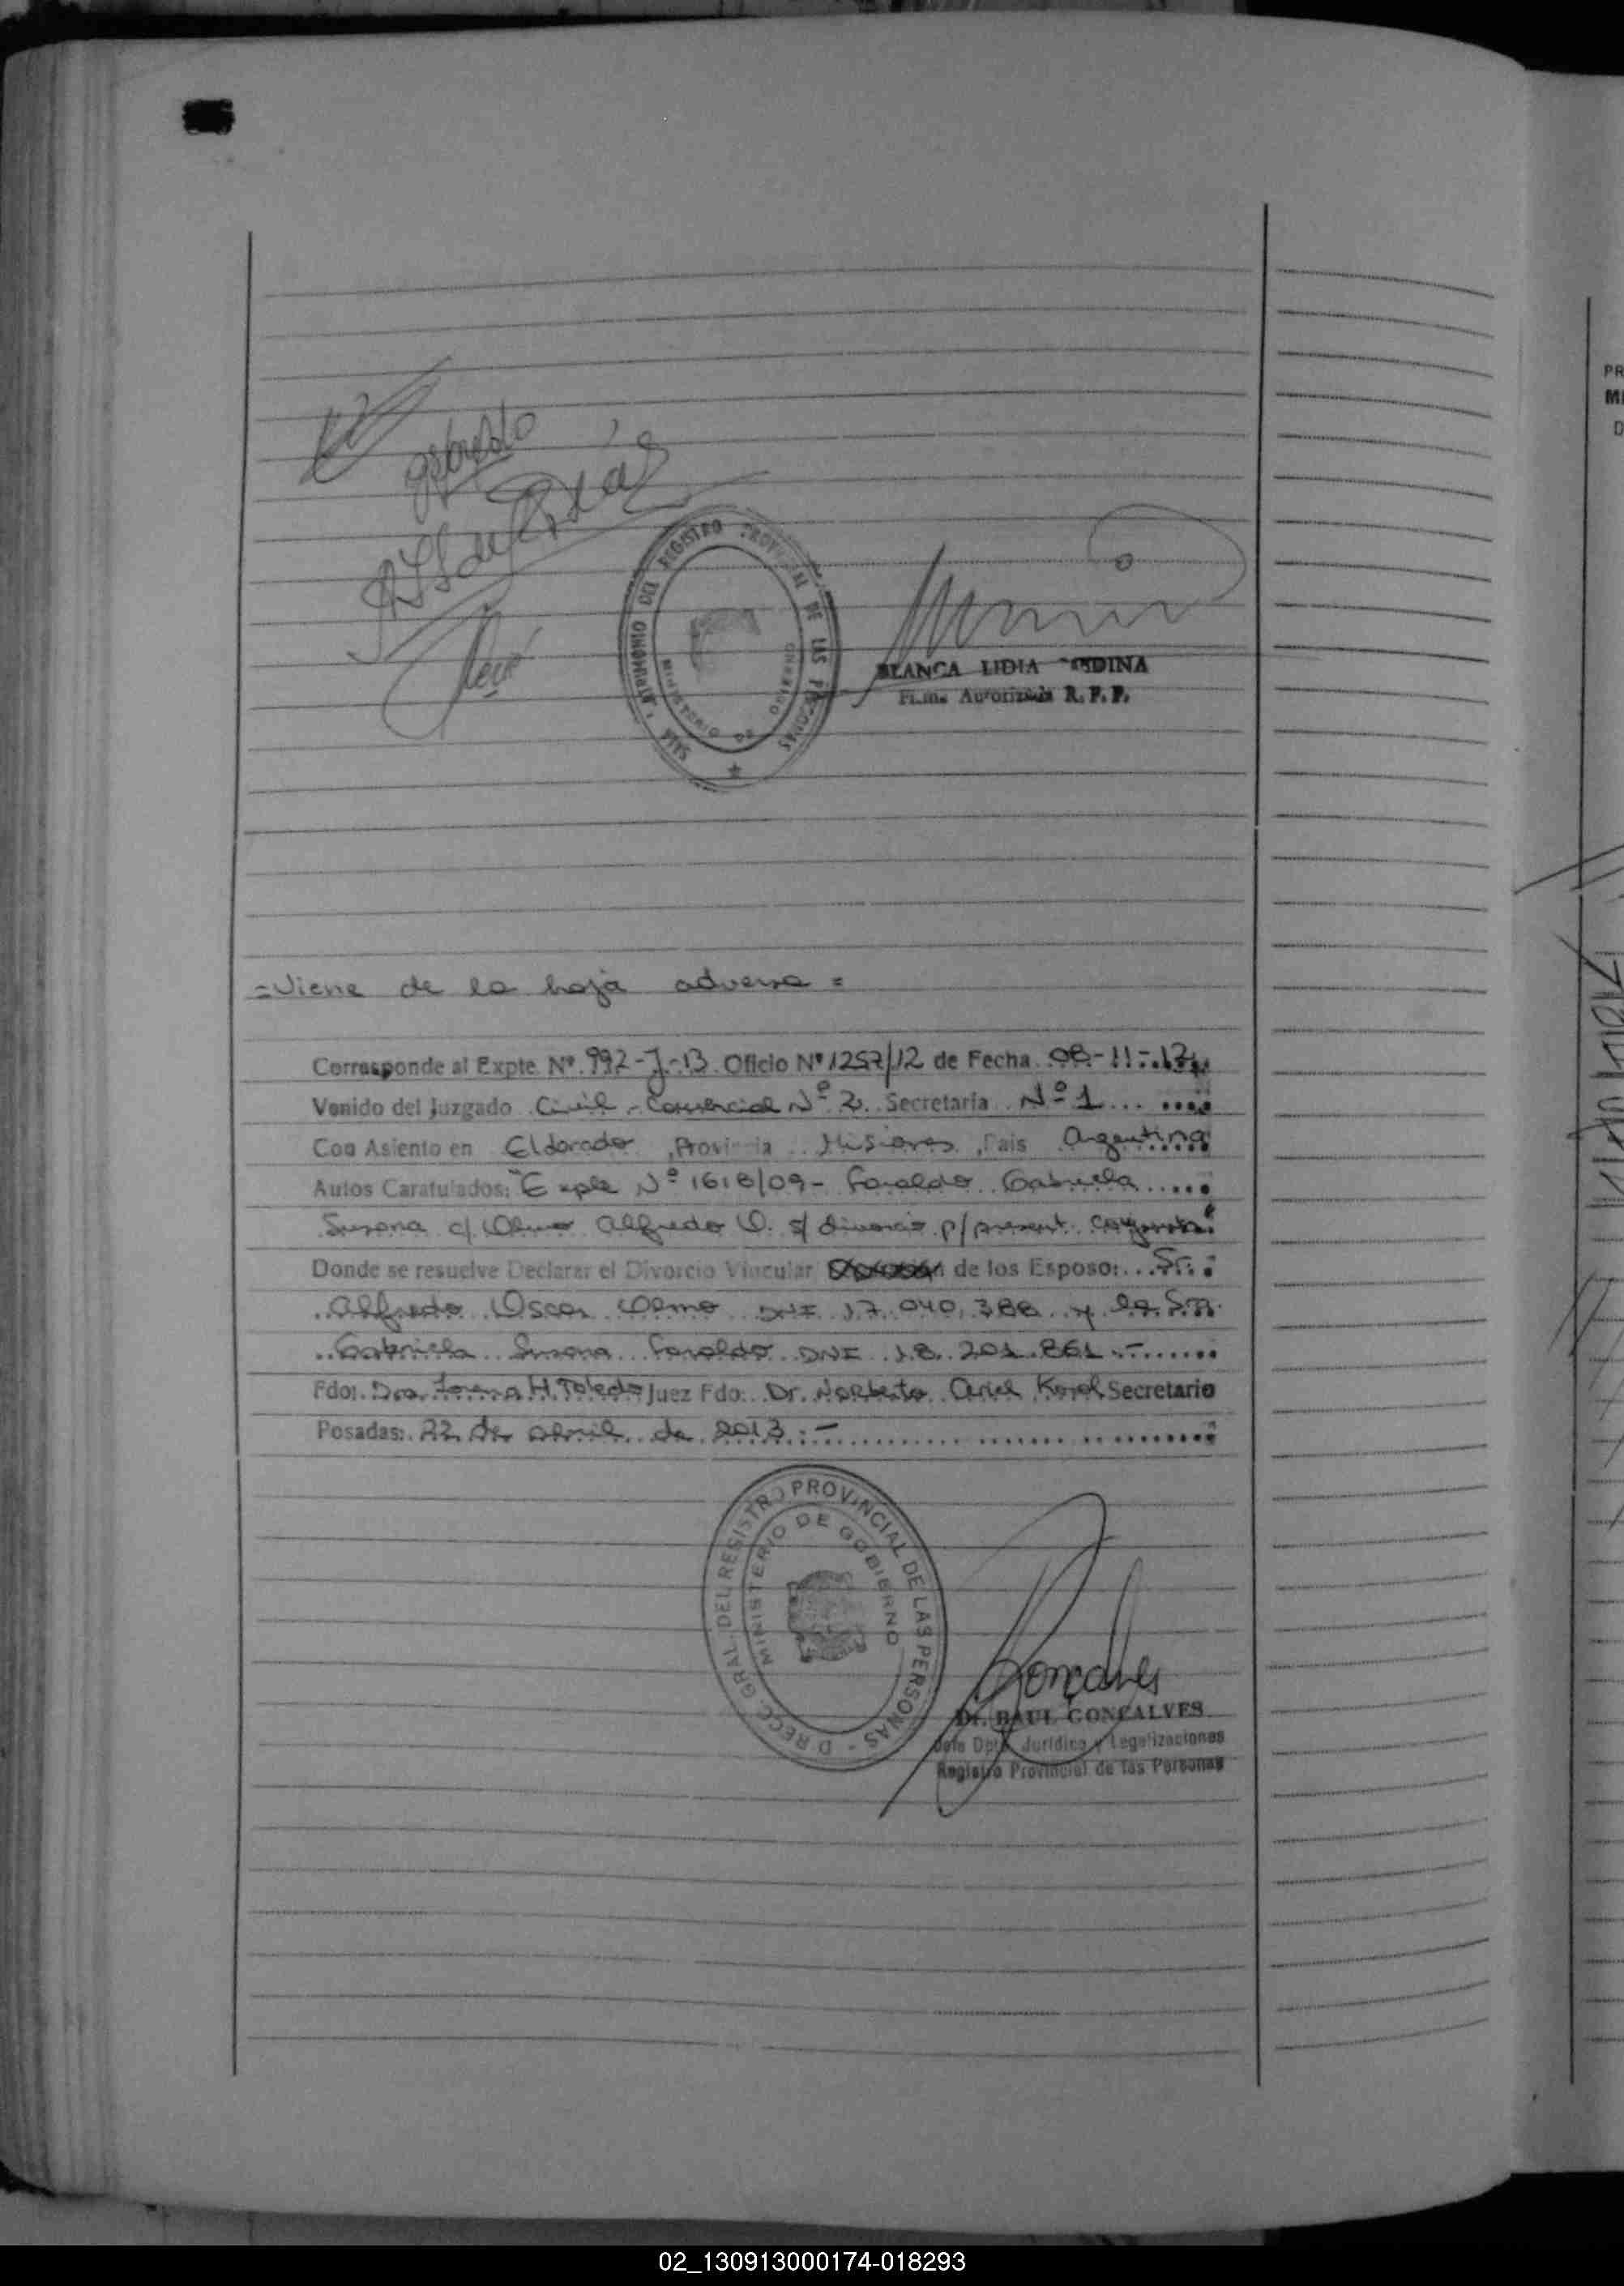 gfaraldo
SALA MATRIMONIO DEL REGISTRO PROVINCIAL DE LAS PERSONAS
MINISTERIO DE GOBIERNO
BLANCA LIDIA
Firma Autorizada R. P. P.
=Viene de la hoja adversa =
Corresponde al Expte. Nº. 992-J-13. Oficio Nº 1257/12 de Fecha. 08-11-12.
Venido del Juzgado Civil - Comercial Nº 2. Secretaría Nº 1
Con Asiento en Eldorado, Provincia Misiones, País Argentina
Autos Caratulados: "Expte Nº 1618/09 - Faraldo Gabriela
Susana c/ Olmo Alfredo O. s/ divorcio p/ present. conjunta"
Donde se resuelve Declarar el Divorcio Vincular de los Esposo: Sr.
Alfredo Oscar Olmo DNI 17.040.388 y la Sra.
Gabriela Susana Faraldo DNI 18.201.861.-
Fdo: Dra. H. Toledo Juez Fdo: Dr. Norberto Ariel Korol Secretario
Posadas: 22 de abril de 2013.-
DIRECC. GRAL. DEL REGISTRO PROVINCIAL DE LAS PERSONAS
MINISTERIO DE GOBIERNO
Goncalves
Dr. RAUL GONCALVES
Jefe Dpto. Jurídico y Legalizaciones
Registro Provincial de las Personas
PR
MI
D
02_130913000174-018293